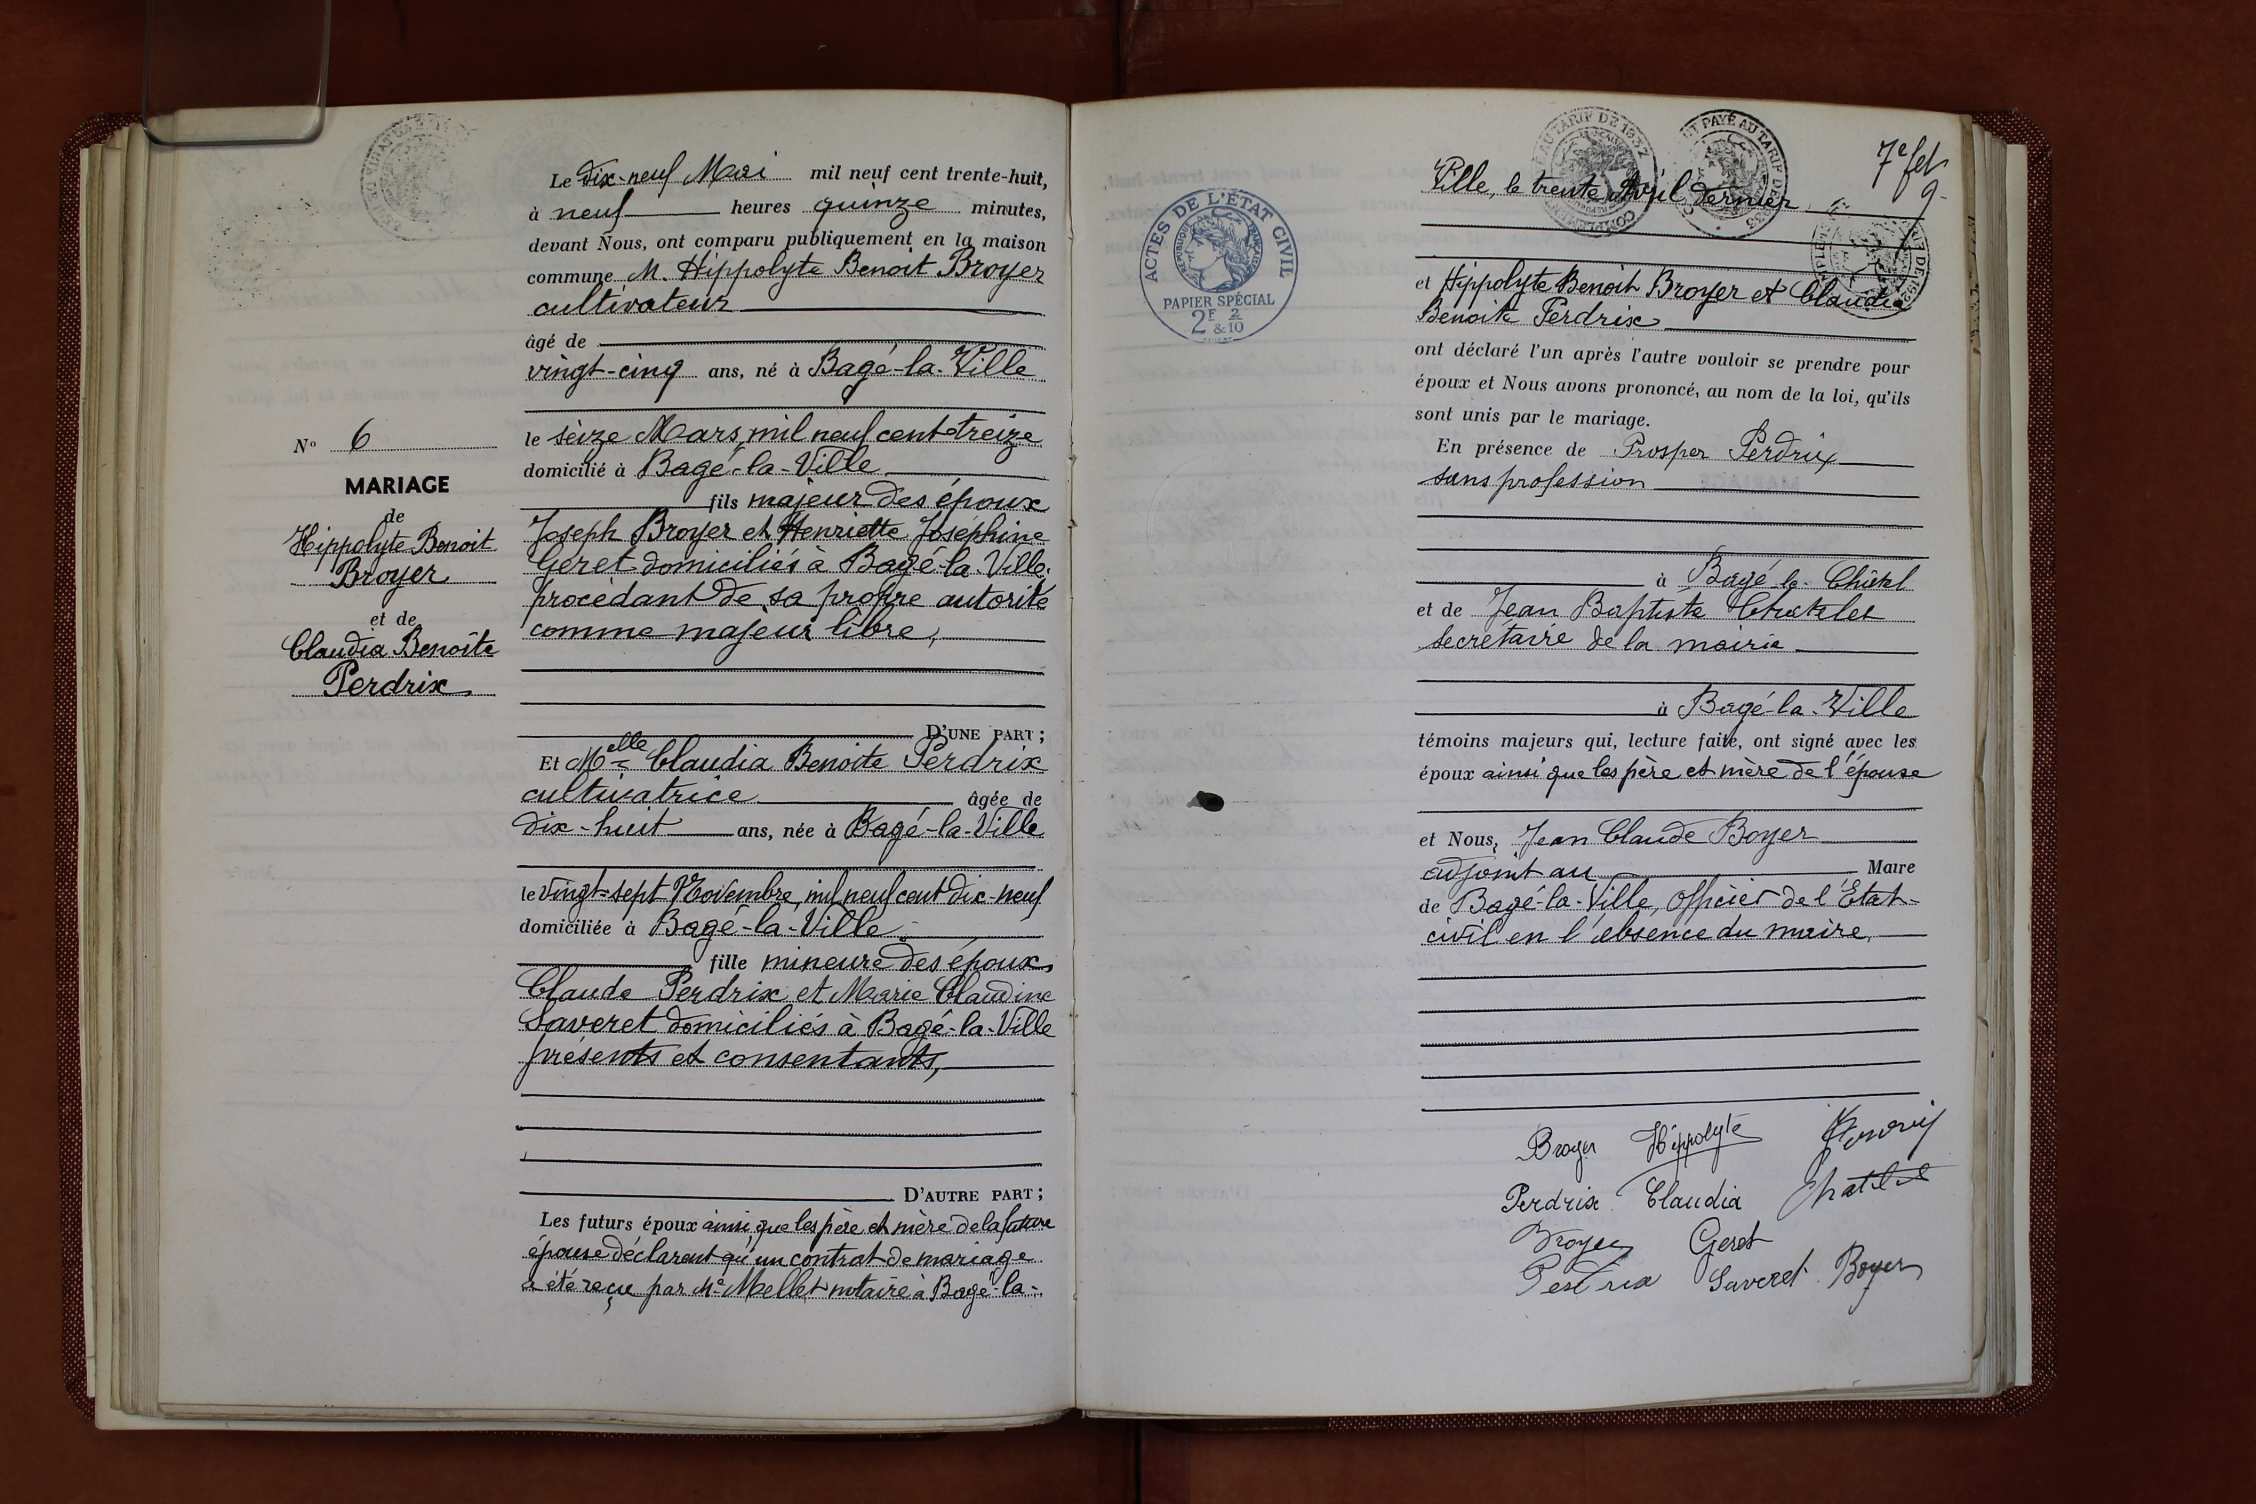 Le dix-neuf Mai mil neuf cent trente-huit,
à neuf heures quinze minutes,
devant Nous, ont comparu publiquement en la maison
commune M. Hippolyte Benoit Broyer
cultivateur
âgé de
vingt-cinq ans, né à Bagé-la-Ville
le seize Mars, mil neuf cent treize
domicilié à Bagé-la-Ville
fils majeur des époux
Joseph Broyer et Henriette Joséphine
Geret domiciliés à Bagé-la-Ville,
procédant de sa propre autorité
comme majeur libre,
D'UNE PART;
Et Melle Claudia Benoite Perdrix
cultivatrice âgée de
dix-huit ans, née à Bagé-la-Ville
le vingt-sept Novembre, mil neuf cent dix-neuf
domiciliée à Bagé-la-Ville
fille mineure des époux
Claude Perdrix et Marie Claudine
Saveret domiciliés à Bagé-la-Ville
présents et consentants,
D'AUTRE PART;
Les futurs époux ainsi que les père et mère de la future
épouse déclarent qu'un contrat de mariage
a été reçu par Me Mellet notaire à Bagé-la-
No 6
MARIAGE
de
Hippolyte Benoit
Broyer
et de
Claudia Benoîte
Perdrix
ACTES DE L'ÉTAT CIVIL
RÉPUBLIQUE FRANÇAISE
PAPIER SPÉCIAL
2F 2
&10
7e fet
9
Ville, le trente Avril dernier
et Hippolyte Benoit Broyer et Claudia
Benoite Perdrix
ont déclaré l'un après l'autre vouloir se prendre pour
époux et Nous avons prononcé, au nom de la loi, qu'ils
sont unis par le mariage.
En présence de Prosper Perdrix
sans profession
à Bagé-le-Châtel
et de Jean Baptiste Chatelet
secrétaire de la mairie
à Bagé-la-Ville
témoins majeurs qui, lecture faite, ont signé avec les
époux ainsi que les père et mère de l'épouse
et Nous, Jean Claude Boyer
adjoint au Maire
de Bagé-la-Ville, Officier de l'État-
civil en l'absence du maire,
Broyer Hippolyte
Perdrix Claudia Chatelet
Broyer Geret
Perdrix Saveret Boyer